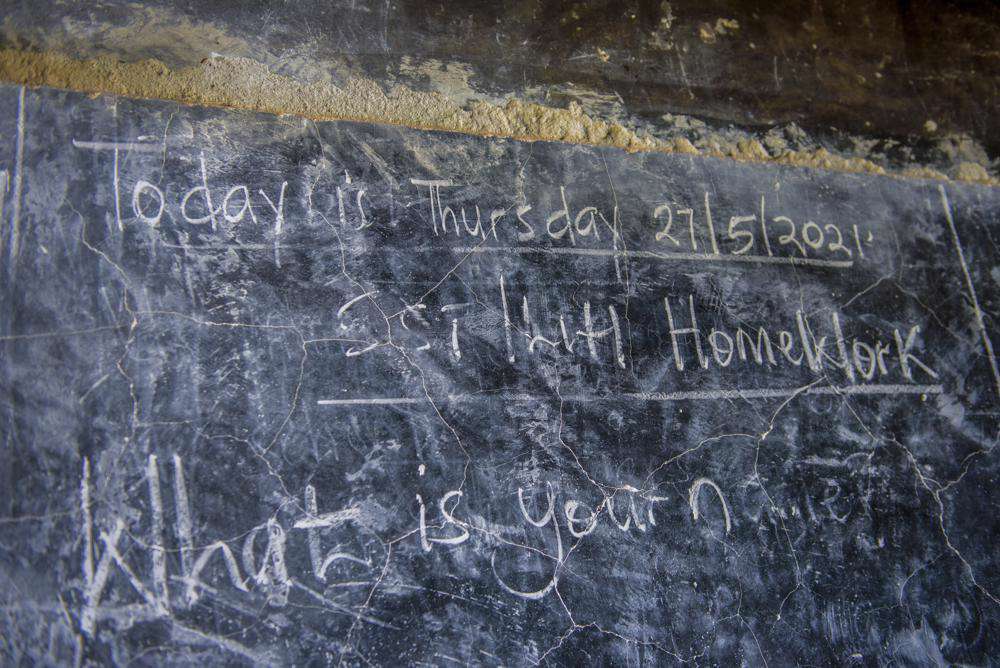 Today is Thursday 27/5/2021
Homework
What is your name